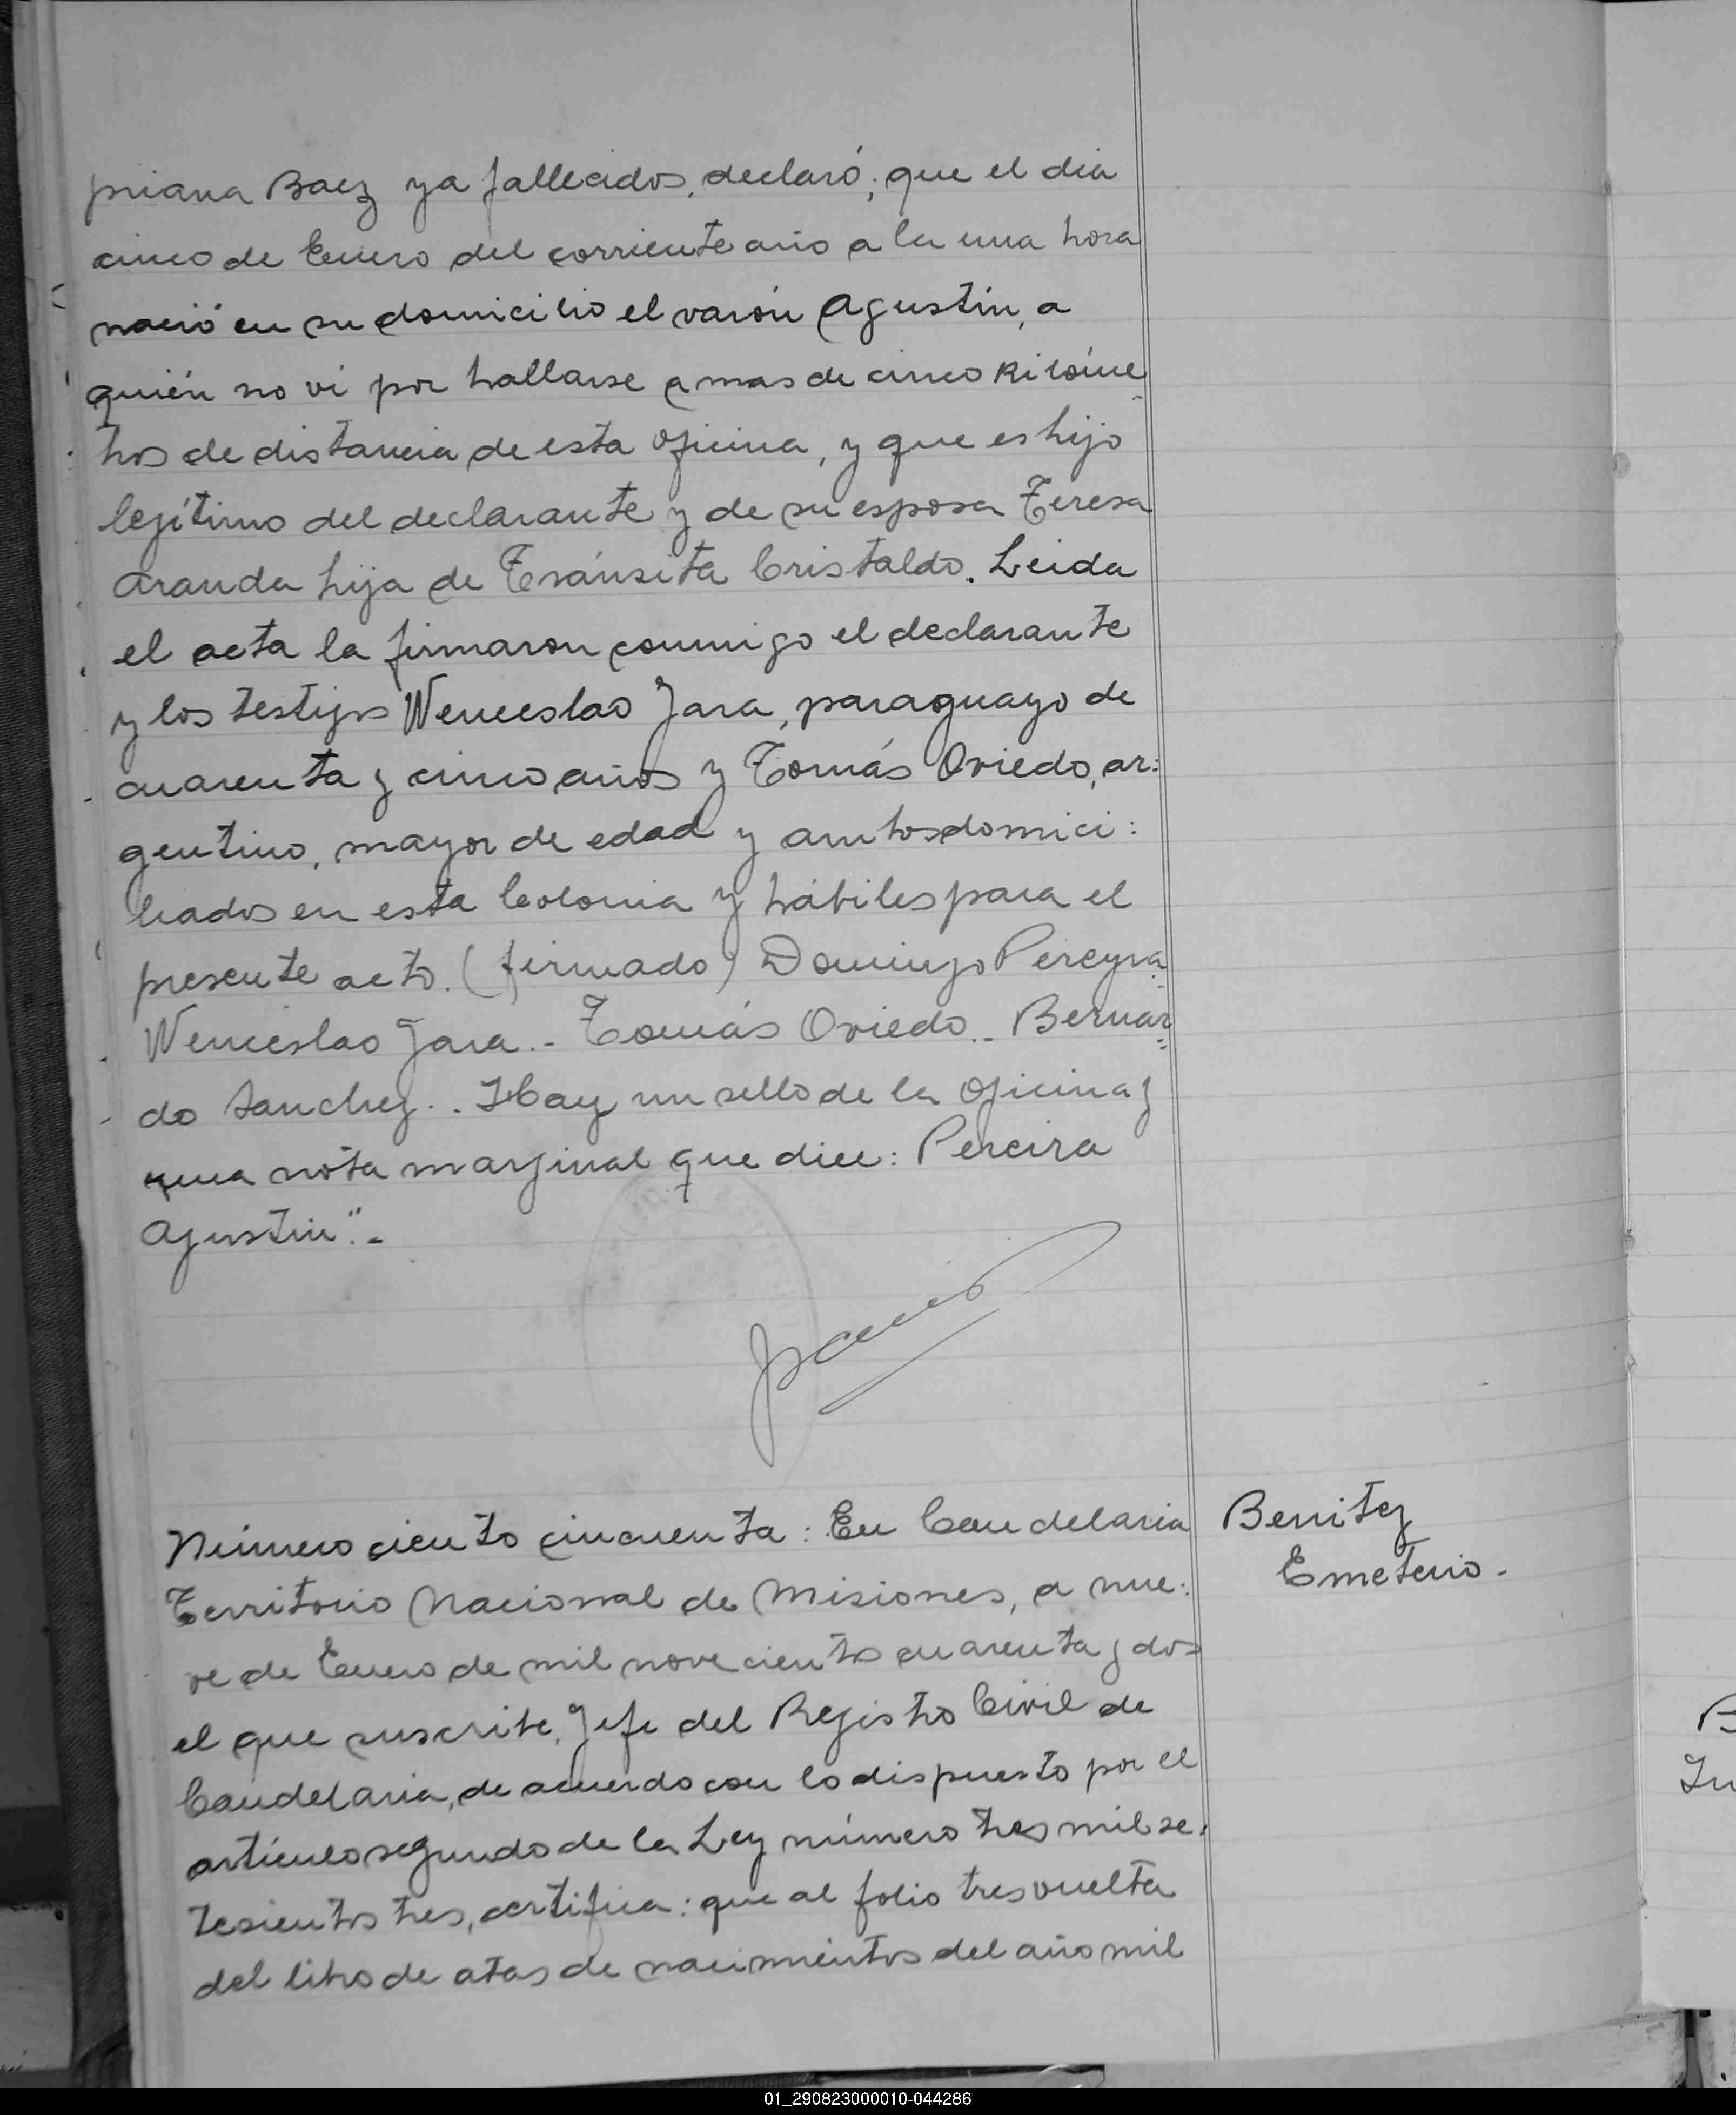 priana Baez ya fallecidos, declaró; que el dia
cinco de Enero del corriente año a la una hora
nació en su domicilio el varón Agustín, a
quién no ví por hallarse a mas de cinco Kilóme
tros de distancia de esta Oficina, y que es hijo
legítimo del declarante y de su esposa Teresa
Aranda hija de Tránsita Cristaldo. Leida
el acta la firmaron conmigo el declarante
y los testigos Wenceslao Jara, paraguayo de
cuarenta y cinco años y Tomás Oviedo, ar:
gentino, mayor de edad y ambos domici:
liados en esta Colonia y hábiles para el
presente acto. (firmado) Domingo Pereyra-
Wenceslao Jara.- Tomás Oviedo.- Bernar=
do Sanchez.. Hay un sello de la Oficina y
una nota marginal que dice: Pereira
Agustín".-
Número ciento cincuenta: En Candelaria
Territorio Nacional de Misiones, a nue:
ve de Enero de mil novecientos cuarenta y dos
el que suscribe, Jefe del Registro Civil de
Candelaria, de acuerdo con lo dispuesto por el
artículo segundo de la Ley número tres mil se.
tesientos tres, certifica: que al folio tres vuelta
del libro de atas de nacimientos del año mil
Benitez
Emeterio.
01_290823000010-044286